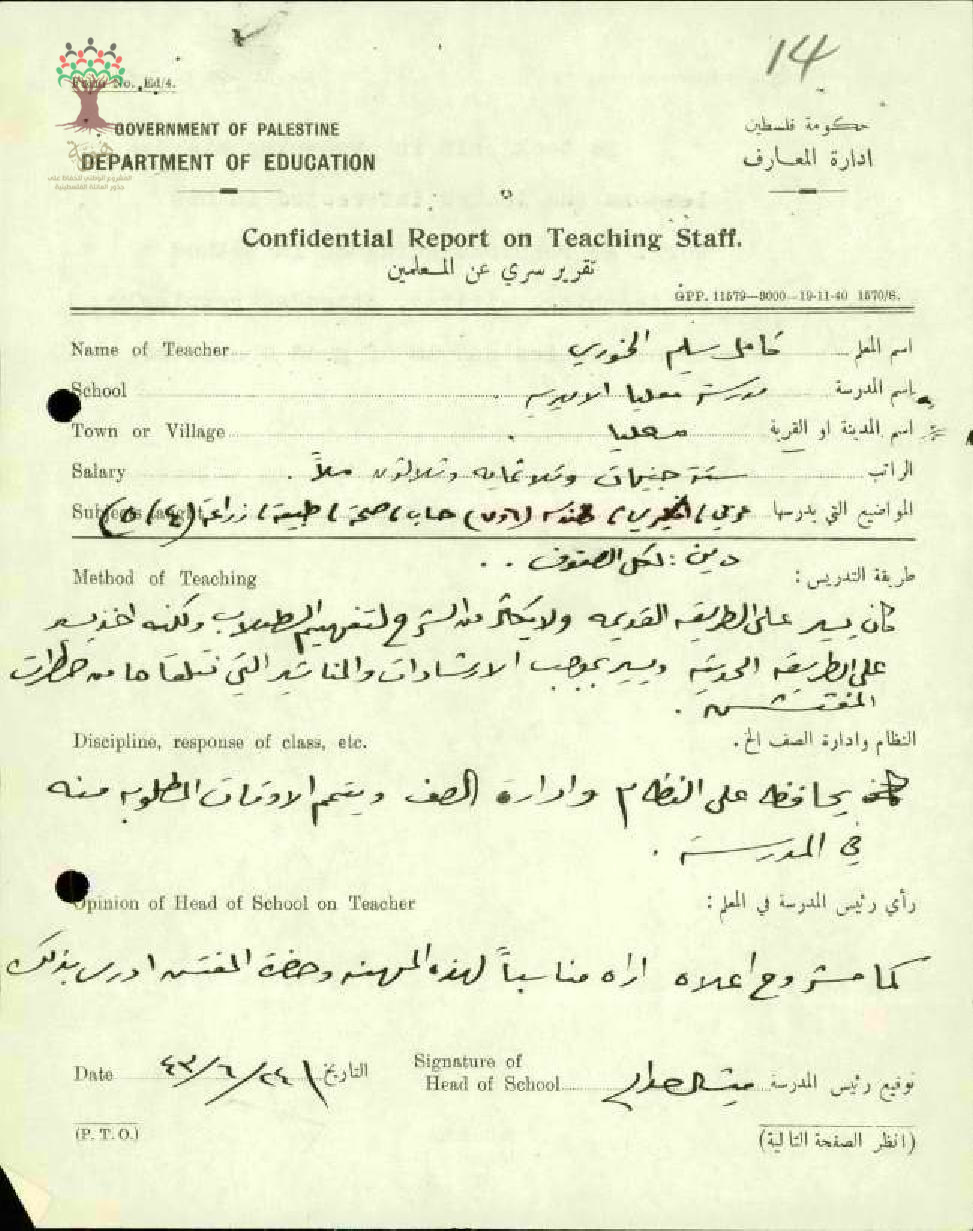 14
Form No. Ed/4.
GOVERNMENT OF PALESTINE
حكومة فلسطين
DEPARTMENT OF EDUCATION
ادارة المعارف
المشروع الوطني للحفاظ على
جذور العائلة الفلسطينية
Confidential Report on Teaching Staff.
تقرير سري عن المعلمين
GPP. 11579—3000—19-11-40 1570/6.
Name of Teacher كامل سليم الخوري اسم المعلم
School مدرسة معليا الاميريه اسم المدرسة
Town or Village معليا اسم المدينة او القرية
Salary ستة جنيهات وثلاثمايه وثلاثون ملاً . الراتب
Subjects taught عربي، هندسه حساب، صحة، طبيعة، زراعة (٤ / ٥) المواضيع التي يدرسها
دين : لكل الصفوف . .
Method of Teaching طريقة التدريس :
كان يسير على الطريقه القديمه ولا يكثر من الشرح لتفهيم الطلاب ولكنه اخذ يسير
على الطريقه الحديثه ويسير بموجب الارشادات والمناشير التي نتلقاها من حضرات
المفتشين .
Discipline, response of class, etc. النظام وادارة الصف الخ.
يحافظ على النظام وادارة الصف ويتمم الاوقات المطلوبه منه
في المدرسة .
Opinion of Head of School on Teacher رأي رئيس المدرسة في المعلم :
كما مشروح اعلاه اراه مناسباً لهذه المهنه وحضرة المفتش ادرى بذلك
Date ٢٤/٦/٤٣ التاريخ Signature of
Head of School توقيع رئيس المدرسة
(P. T. O.) (انظر الصفحة التالية)